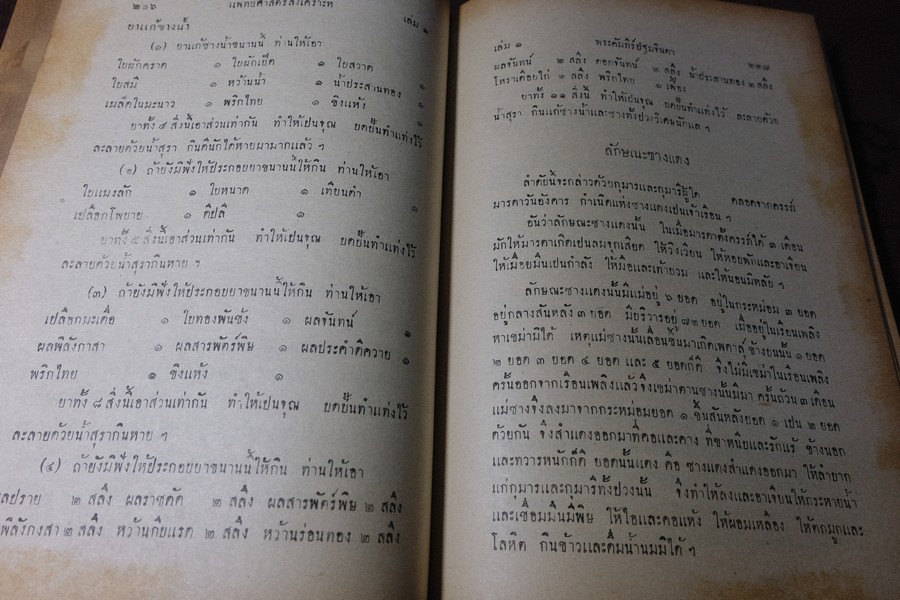 ๒๑๖ แพทยศาสตร์สงเคราะห์ เล่ม ๑
ยาแก้ซางน้ำ
(๑) ยาแก้ซางน้ำขนานนี้ ท่านให้เอา
ใบผักคราด ๑ ใบผักเข็ด ๑ ใบสวาด ๑
ใบสมี ๑ หว้านน้ำ ๑ น้ำประสานทอง ๑
เมล็ดในมะนาว ๑ พริกไทย ๑ ขิงแห้ง ๑
ยาทั้ง ๙ สิ่งนี้เอาส่วนเท่ากัน ทำให้เปนจุณ บดปั้นทำแท่งไว้
ละลายด้วยน้ำสุรา กินดีนักได้หายมามากแล้ว ๆ
(๒) ถ้ายังมิฟังให้ประกอบยาขนานนี้ให้กิน ท่านให้เอา
ใบแมงลัก ๑ ใบหนาด ๑ เทียนดำ ๑
เปลือกโพบาย ๑ ดีปลี ๑
ยาทั้ง ๕ สิ่งนี้เอาส่วนเท่ากัน ทำให้เปนจุณ บดปั้นทำแท่งไว้
ละลายด้วยน้ำสุรากินหาย ๆ
(๓) ถ้ายังมิฟังให้ประกอบยาขนานนี้ให้กิน ท่านให้เอา
เปลือกมะเดื่อ ๑ ใบทองพันชั่ง ๑ ผลจันทน์ ๑
ผลพิลังกาสา ๑ ผลสารพัดพิษ ๑ ผลประคำดีควาย ๑
พริกไทย ๑ ขิงแห้ง ๑
ยาทั้ง ๘ สิ่งนี้เอาส่วนเท่ากัน ทำให้เปนจุณ บดปั้นทำแท่งไว้
ละลายด้วยน้ำสุรากินหาย ๆ
(๔) ถ้ายังมิฟังให้ประกอบยาขนานนี้ให้กิน ท่านให้เอา
ผลปราย ๒ สลึง ผลราชดัด ๒ สลึง ผลสารพัดพิษ ๒ สลึง
พิลังกาสา ๒ สลึง หว้านกีบแรด ๒ สลึง หว้านร่อนทอง ๒ สลึง
เล่ม ๑ พระคัมภีร์ปฐมจินดา ๒๑๗
ผลจันทน์ ๒ สลึง ดอกจันทน์ ๒ สลึง น้ำประสานทอง ๒ สลึง
โหราเดือยไก่ ๒ สลึง พริกไทย ๑ เฟื้อง
ยาทั้ง ๑๑ สิ่งนี้ ทำให้เปนจุณ บดปั้นทำแท่งไว้ ละลายด้วย
น้ำสุรา กินแก้ซางน้ำและซางทั้งปวงวิเศษนักแล ๆ
ลักษณะซางแดง
ลำดับนี้จะกล่าวด้วยกุมารและกุมารีผู้ใด คลอดจากครรภ์
มารดาวันอังคาร กำเนิดแห่งซางแดงเปนเจ้าเรือน ๆ
อันว่าลักษณะซางแดงนั้น ในเมื่อมารดาตั้งครรภ์ได้ ๓ เดือน
มักให้มารดาเกิดเปนลมจุกเสียด ให้วิงเวียน ให้หอบพักและอาเจียน
ให้เมื่อยมึนเปนกำลัง ให้มือและเท้าบวม และให้นอนมิหลับ ๆ
ลักษณะซางแดงนั้นมีแม่อยู่ ๖ ยอด อยู่ในกระหม่อม ๓ ยอด
อยู่กลางสันหลัง ๓ ยอด มีบริวารอยู่ ๗๒ ยอด เมื่ออยู่ในเรือนเพลิง
หาเขม่ามิได้ เหตุแม่ซางนั้นเลื่อนขึ้นมาเกิดเพดาลข้างบนนั้น ๑ ยอด
๒ ยอด ๓ ยอด ๔ ยอด และ ๕ ยอดก็ดี จึงไม่มีเขม่าในเรือนเพลิง
ครั้นออกจากเรือนเพลิงแล้ว จึงเขม่าตานซางนั้นมีมา ครั้นถ้วน ๓ เดือน
แม่ซางจึงลงมาจากกระหม่อมยอด ๑ ขึ้นสันหลังยอด ๑ เปน ๒ ยอด
ด้วยกัน จึงสำแดงออกมาที่คอและคาง ที่ขาหนีบและรักแร้ ข้างนอก
และทวารหนักก็ดี ยอดนั้นแดง คือ ซางแดงสำแดงออกมา ให้ลำบาก
แก่กุมารและกุมารีทั้งปวงนั้น จึงทำให้ลงและอาเจียนให้กระหายน้ำ
และเชื่อมมึนมีพิษ ให้ไอและคอแห้ง ให้ผอมเหลือง ให้ตกมูกและ
โลหิต กินข้าวและดื่มน้ำนมมิได้ ๆ